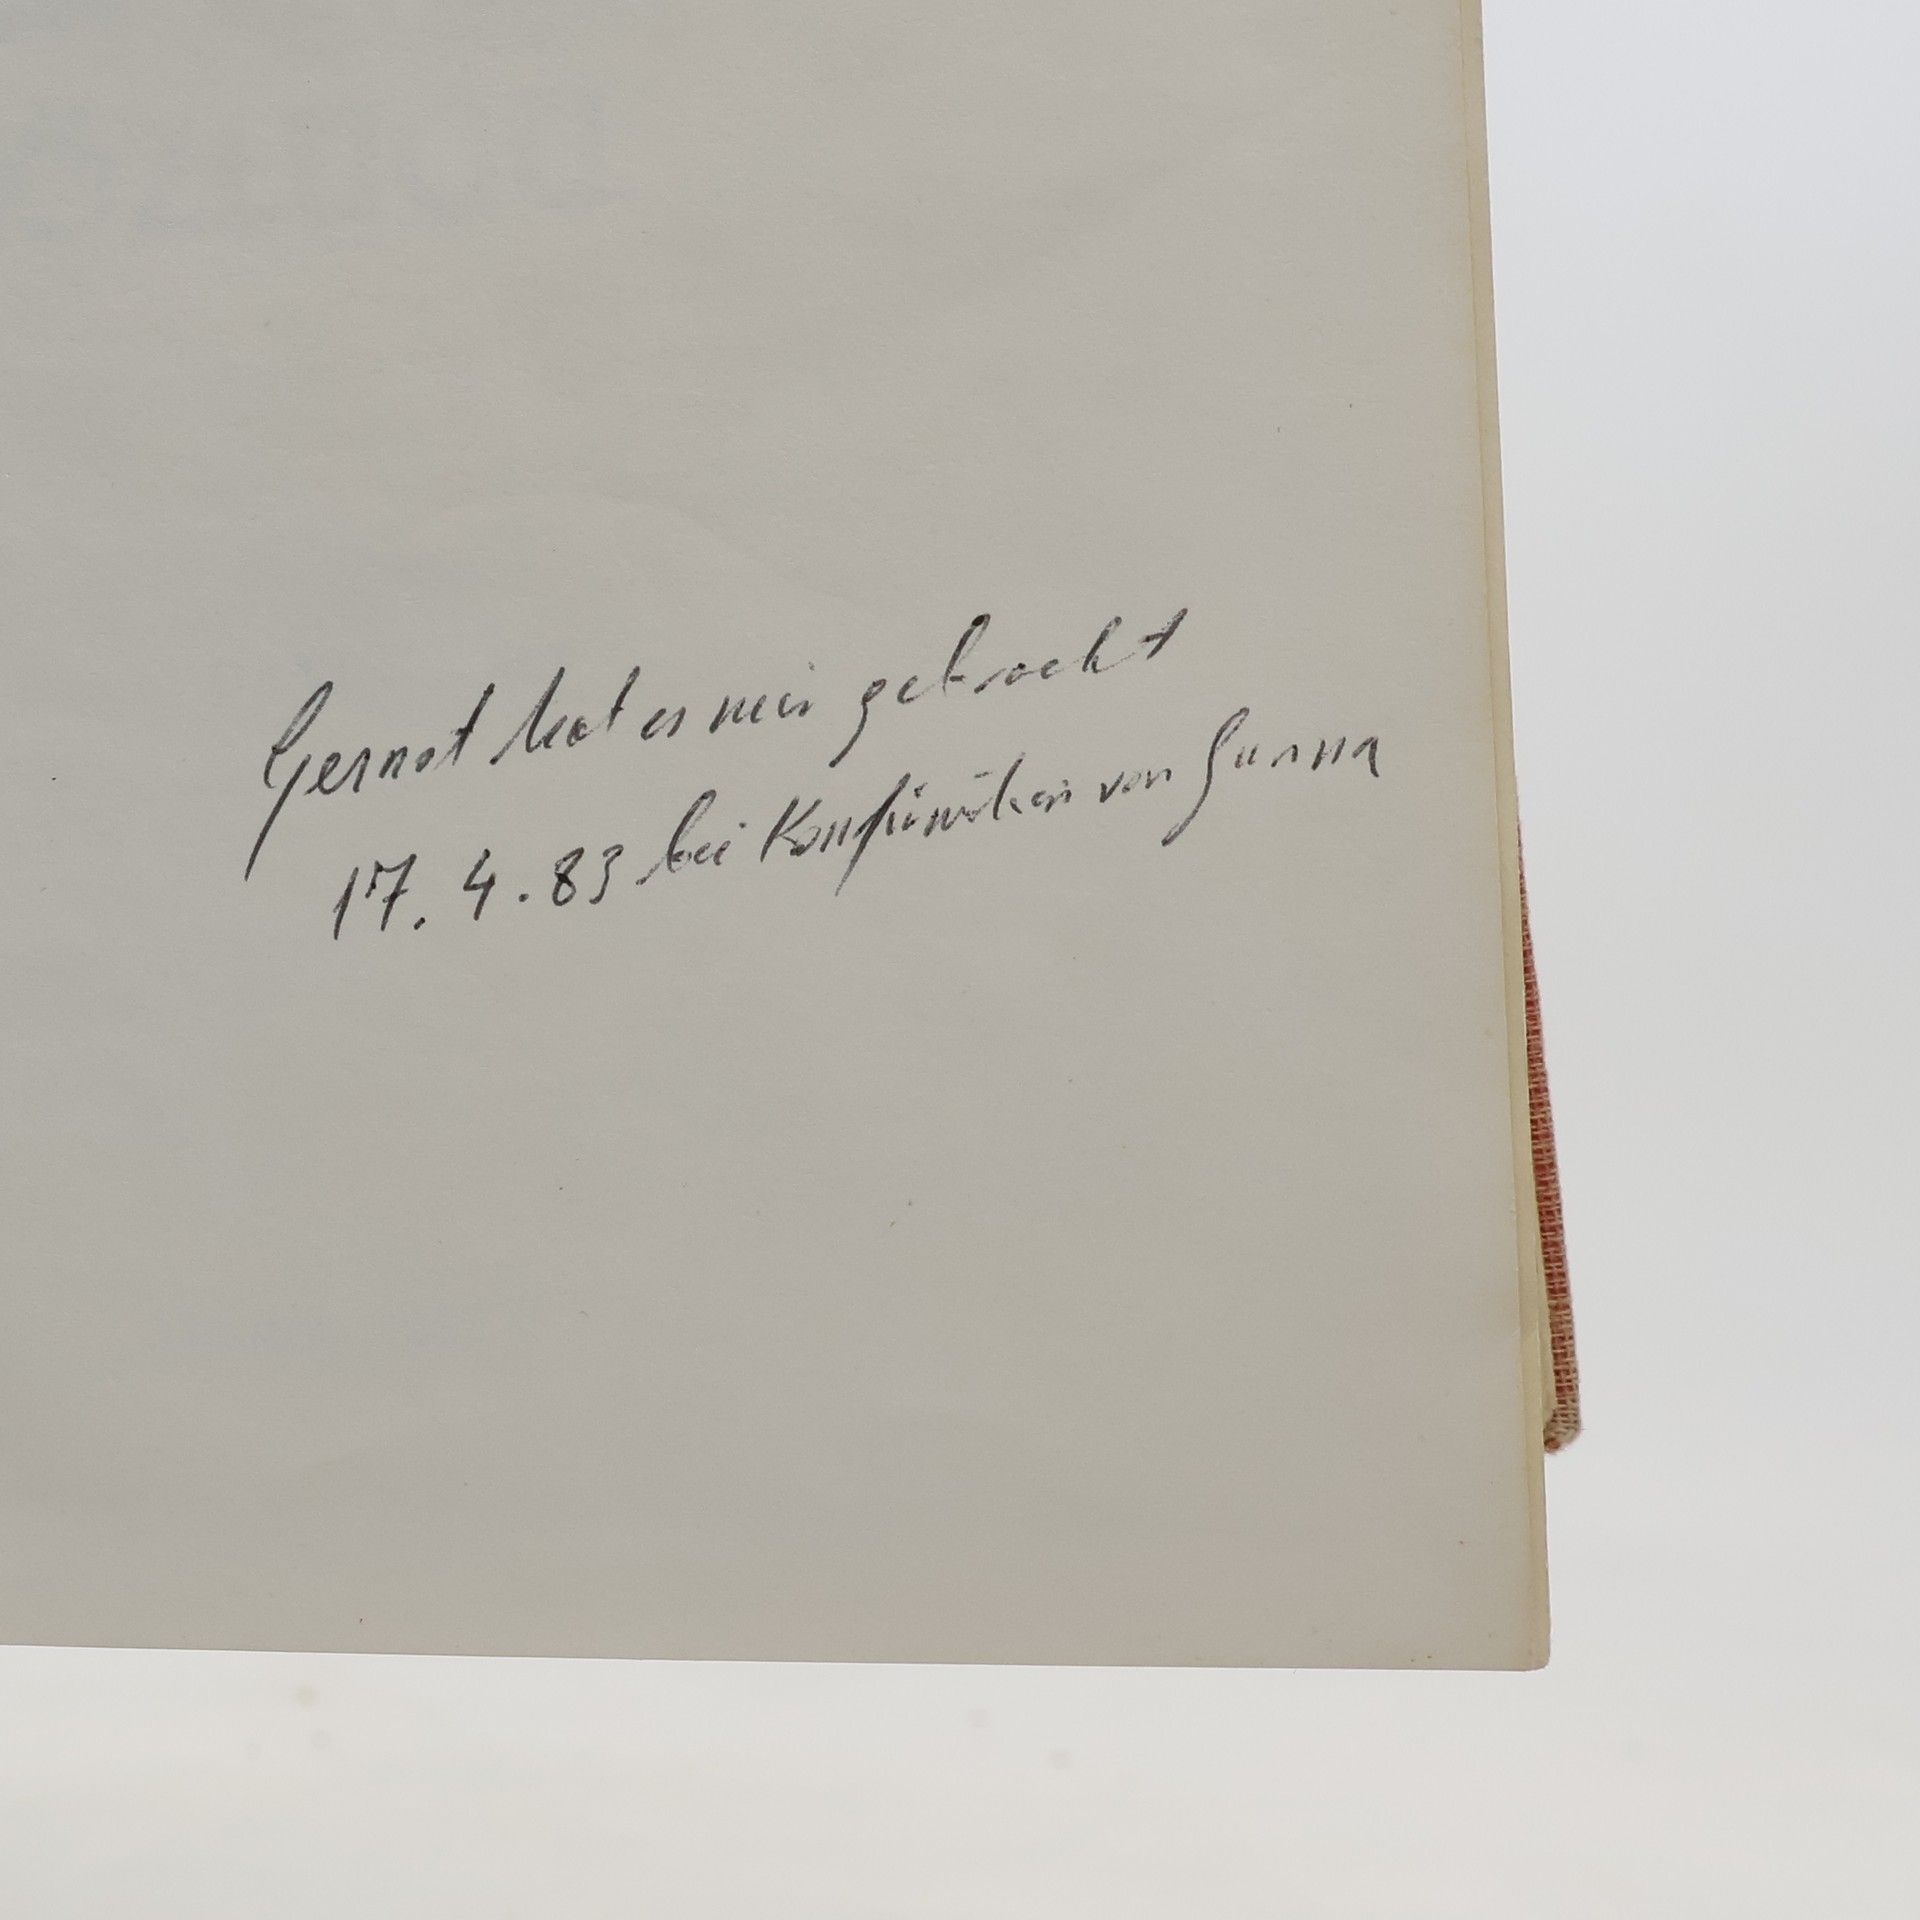 Gernot hat es mir gebracht
17. 4. 83 bei Konfirmation von